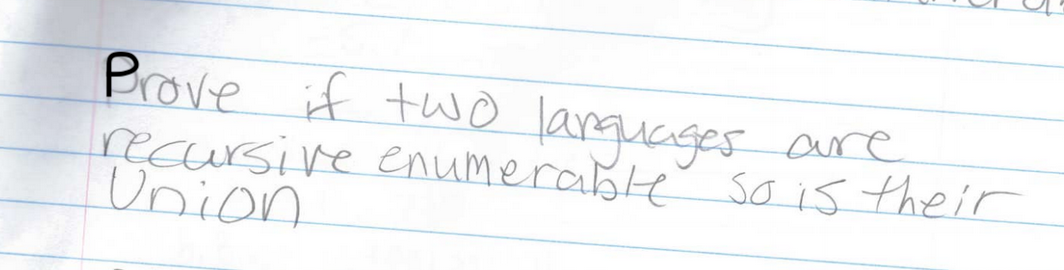 Prove if two languages are
recursive enumerable so is their
Union